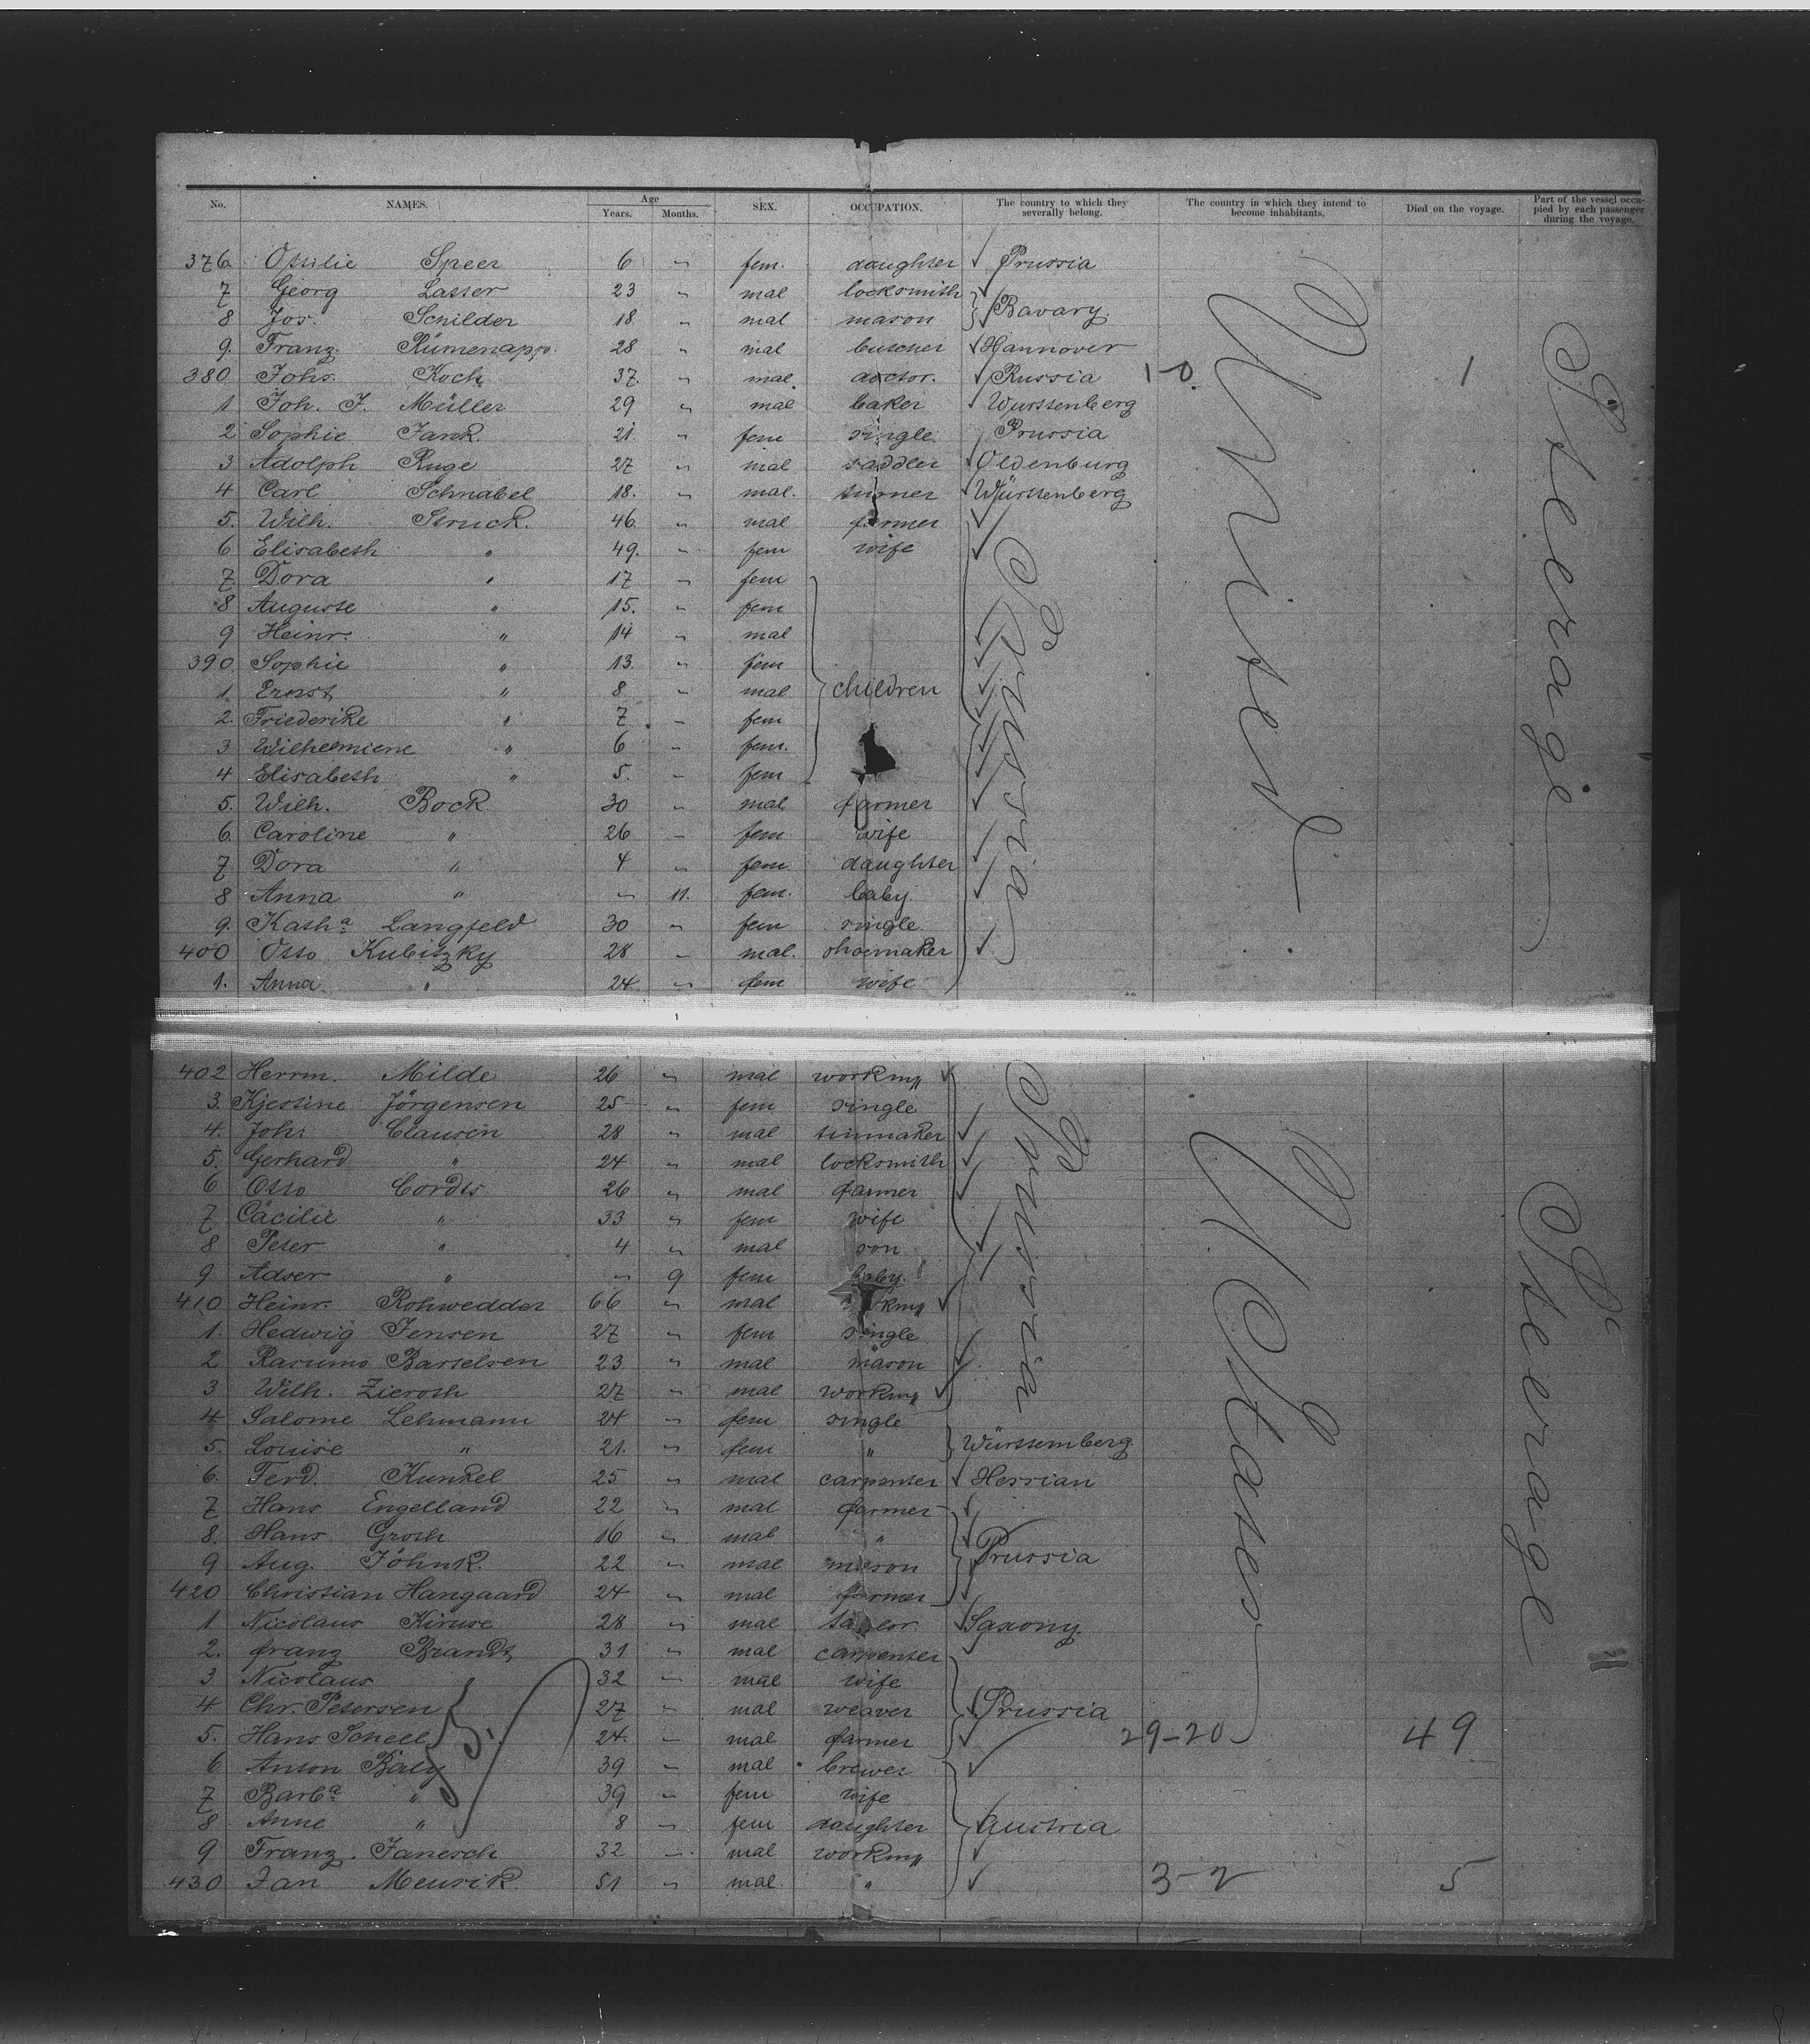 No. NAMES. Age Years. Months. SEX. OCCUPATION. The country to which they severally belong. The country in which they intend to become inhabitants. Died on the voyage. Part of the vessel occupied by each passenger during the voyage.
376 Ottilie Speer 6 " fem. daughter Prussia
7 Georg Lasser 23 " mal locksmith
8 Jos. Schilder 18 " mal mason Bavary.
9. Franz. Rümenapp. 28 " mal butcher Hannover
380 Johs. Koch. 37. " mal. doctor. Russia 1-0. 1
1 Joh. J. Müller 29 " mal baker Wurttenberg
2 Sophie Jank. 21 " fem single Prussia
3 Adolph Ruge 27 " mal saddler Oldenburg
4 Carl Schnabel 18. " mal. turner Württenberg
5. Wilh. Struck. 46 " mal farmer
6 Elisabeth " 49. " fem wife
7. Dora " 17 " fem
8 Auguste " 15. " fem
9 Heinr. " 14 " mal
390 Sophie " 13. " fem
1. Ernst " 8 " mal children
2. Friederike " 7 " fem
3 Wilhelmiene " 6 " fem.
4 Elisabeth " 5. " fem
5. Wilh. Bock 30 " mal farmer
6. Caroline " 26 " fem wife
7 Dora " 4 " fem daughter
8 Anna " " 11. fem. baby.
9. Katha. Langfeld 30 " fem single
400 Otto Kubitzky 28 " mal. shoemaker
1. Anna " 24 " fem wife
Prussia
United
Steerage
402 Herrm. Milde 26 " mal workm
3. Kjestine Jörgensen 25 " fem single
4. Joh. Clausen 28 " mal tinmaker
5. Gerhard " 24 " mal locksmith
6 Otto Cordts 26 " mal farmer
7 Cäcilie " 33 " fem wife
8 Peter " 4 " mal son
9 Adser " " 9 fem baby.
410 Heinr. Rohwedder 66 " mal workm
1. Hedwig Jensen 27 " fem single
2 Rasums Bartelsen 23 " mal mason
3 Wilh. Zieroth 27 " mal workm
4 Salome Lehmann 24 " fem single
5. Louise " 21. " fem " Württemberg.
6. Ferd. Kunkel 25 " mal carpenter Hessian
7 Hans Engelland 22 " mal farmer
8. Hans Groth 16 " mal "
9 Aug. Jöhnk. 22 " mal mason Prussia
420 Christian Hangaard 24 " mal farmer
1 Nicolaus Kiruse 28 " mal Saxony.
2. Franz Brandt 31 " mal carpenter
3 Nicolaus " 32 " mal wife
4 Chr. Petersen 27 " mal weaver Prussia
5. Hans Scheel 24. " mal farmer 29-20 49
6 Anton Baly 39 " mal brewer
7 Barba. " 39 " fem wife
8 Anne " 8 " fem daughter Austria
9 Franz. Janesch 32 " mal workm
430 Jan Meusik 51 " mal. " 3-2 5
Prussia
States
Steerage